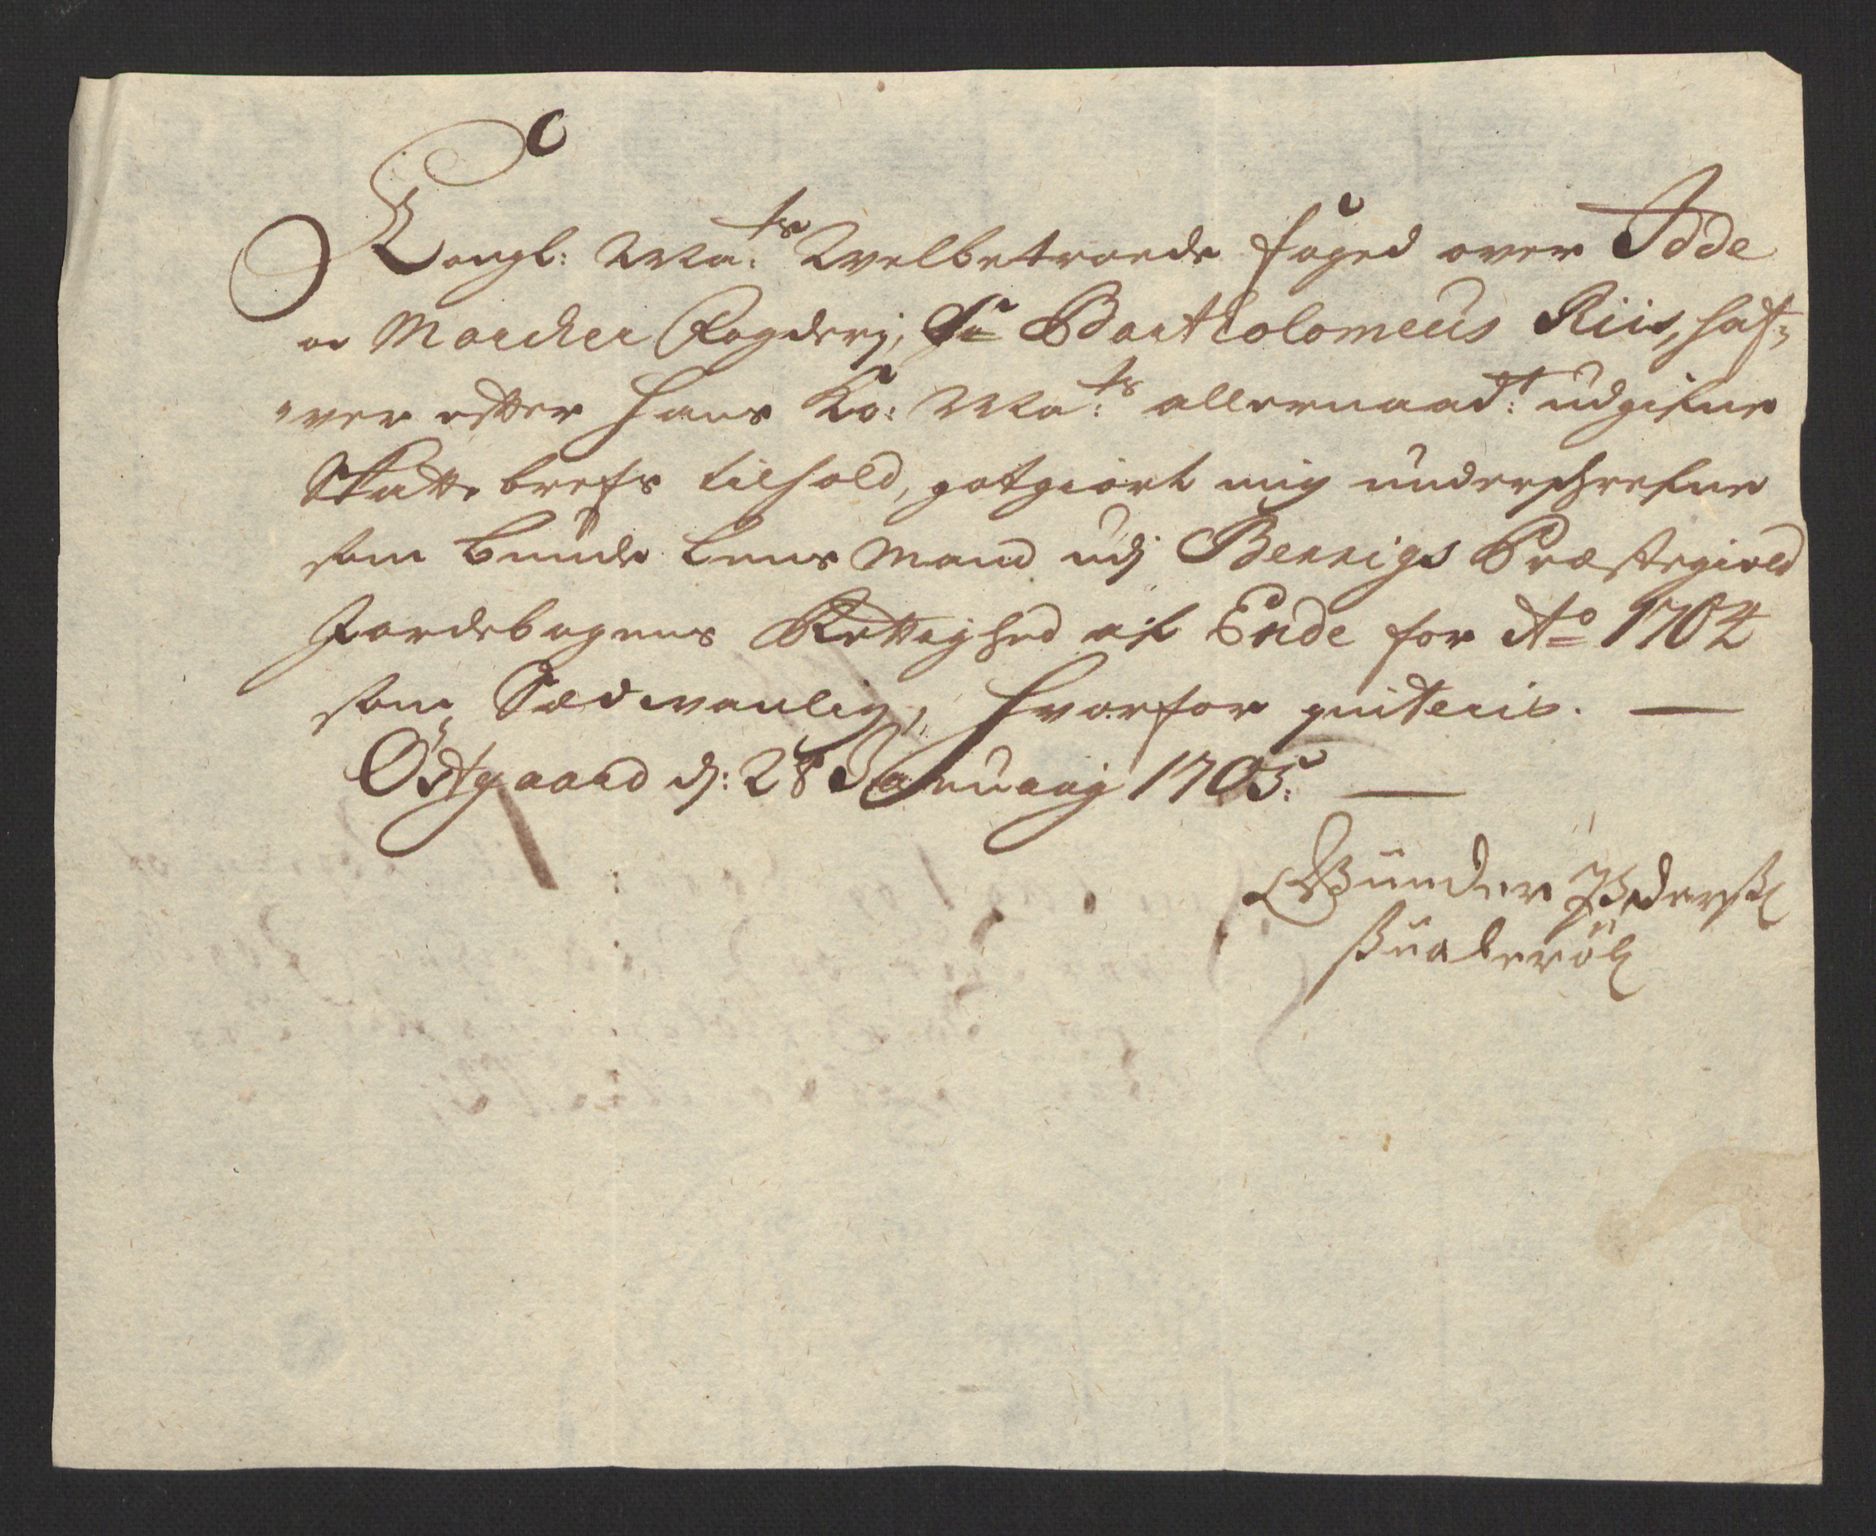 C
Kongl: Ma:ts Welbetroede foged over Idde
oc Marcker Fogderj, Sr Bartholomeus Riis, haf-
wer efter Hans Ko: Ma:ts allernaad:t udgifne
Skatte brefs tilhold, gotgiort mig underskrefne
som bunde Lens Mand udj Bennigs Præstegield
Jordebogens Rettighed af Ende for Ao 1704
som Sædwanlig, hvorfor quiteris. —
Östgaard d: 28 Januarij 1705: —
Gunder Pedersen